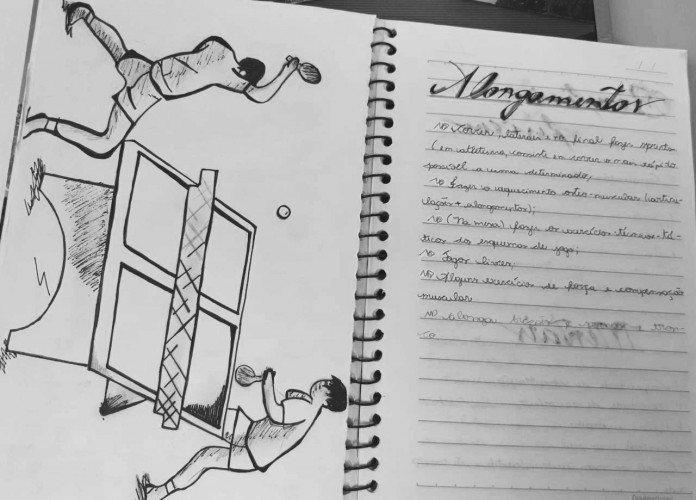 Alongamentos
Correr, laterais e no final fazer sprints
(em atletismo, consiste em correr o mais rápido
possível a uma determinada;
Fazer o aquecimento osteo-muscular (articu-
lações + alongamentos);
(Na mesa) fazer os exercícios técnicos-tá-
ticos do esquemas de jogo;
Jogos livres;
Alguns exercícios de força e compensação
muscular
Alonga